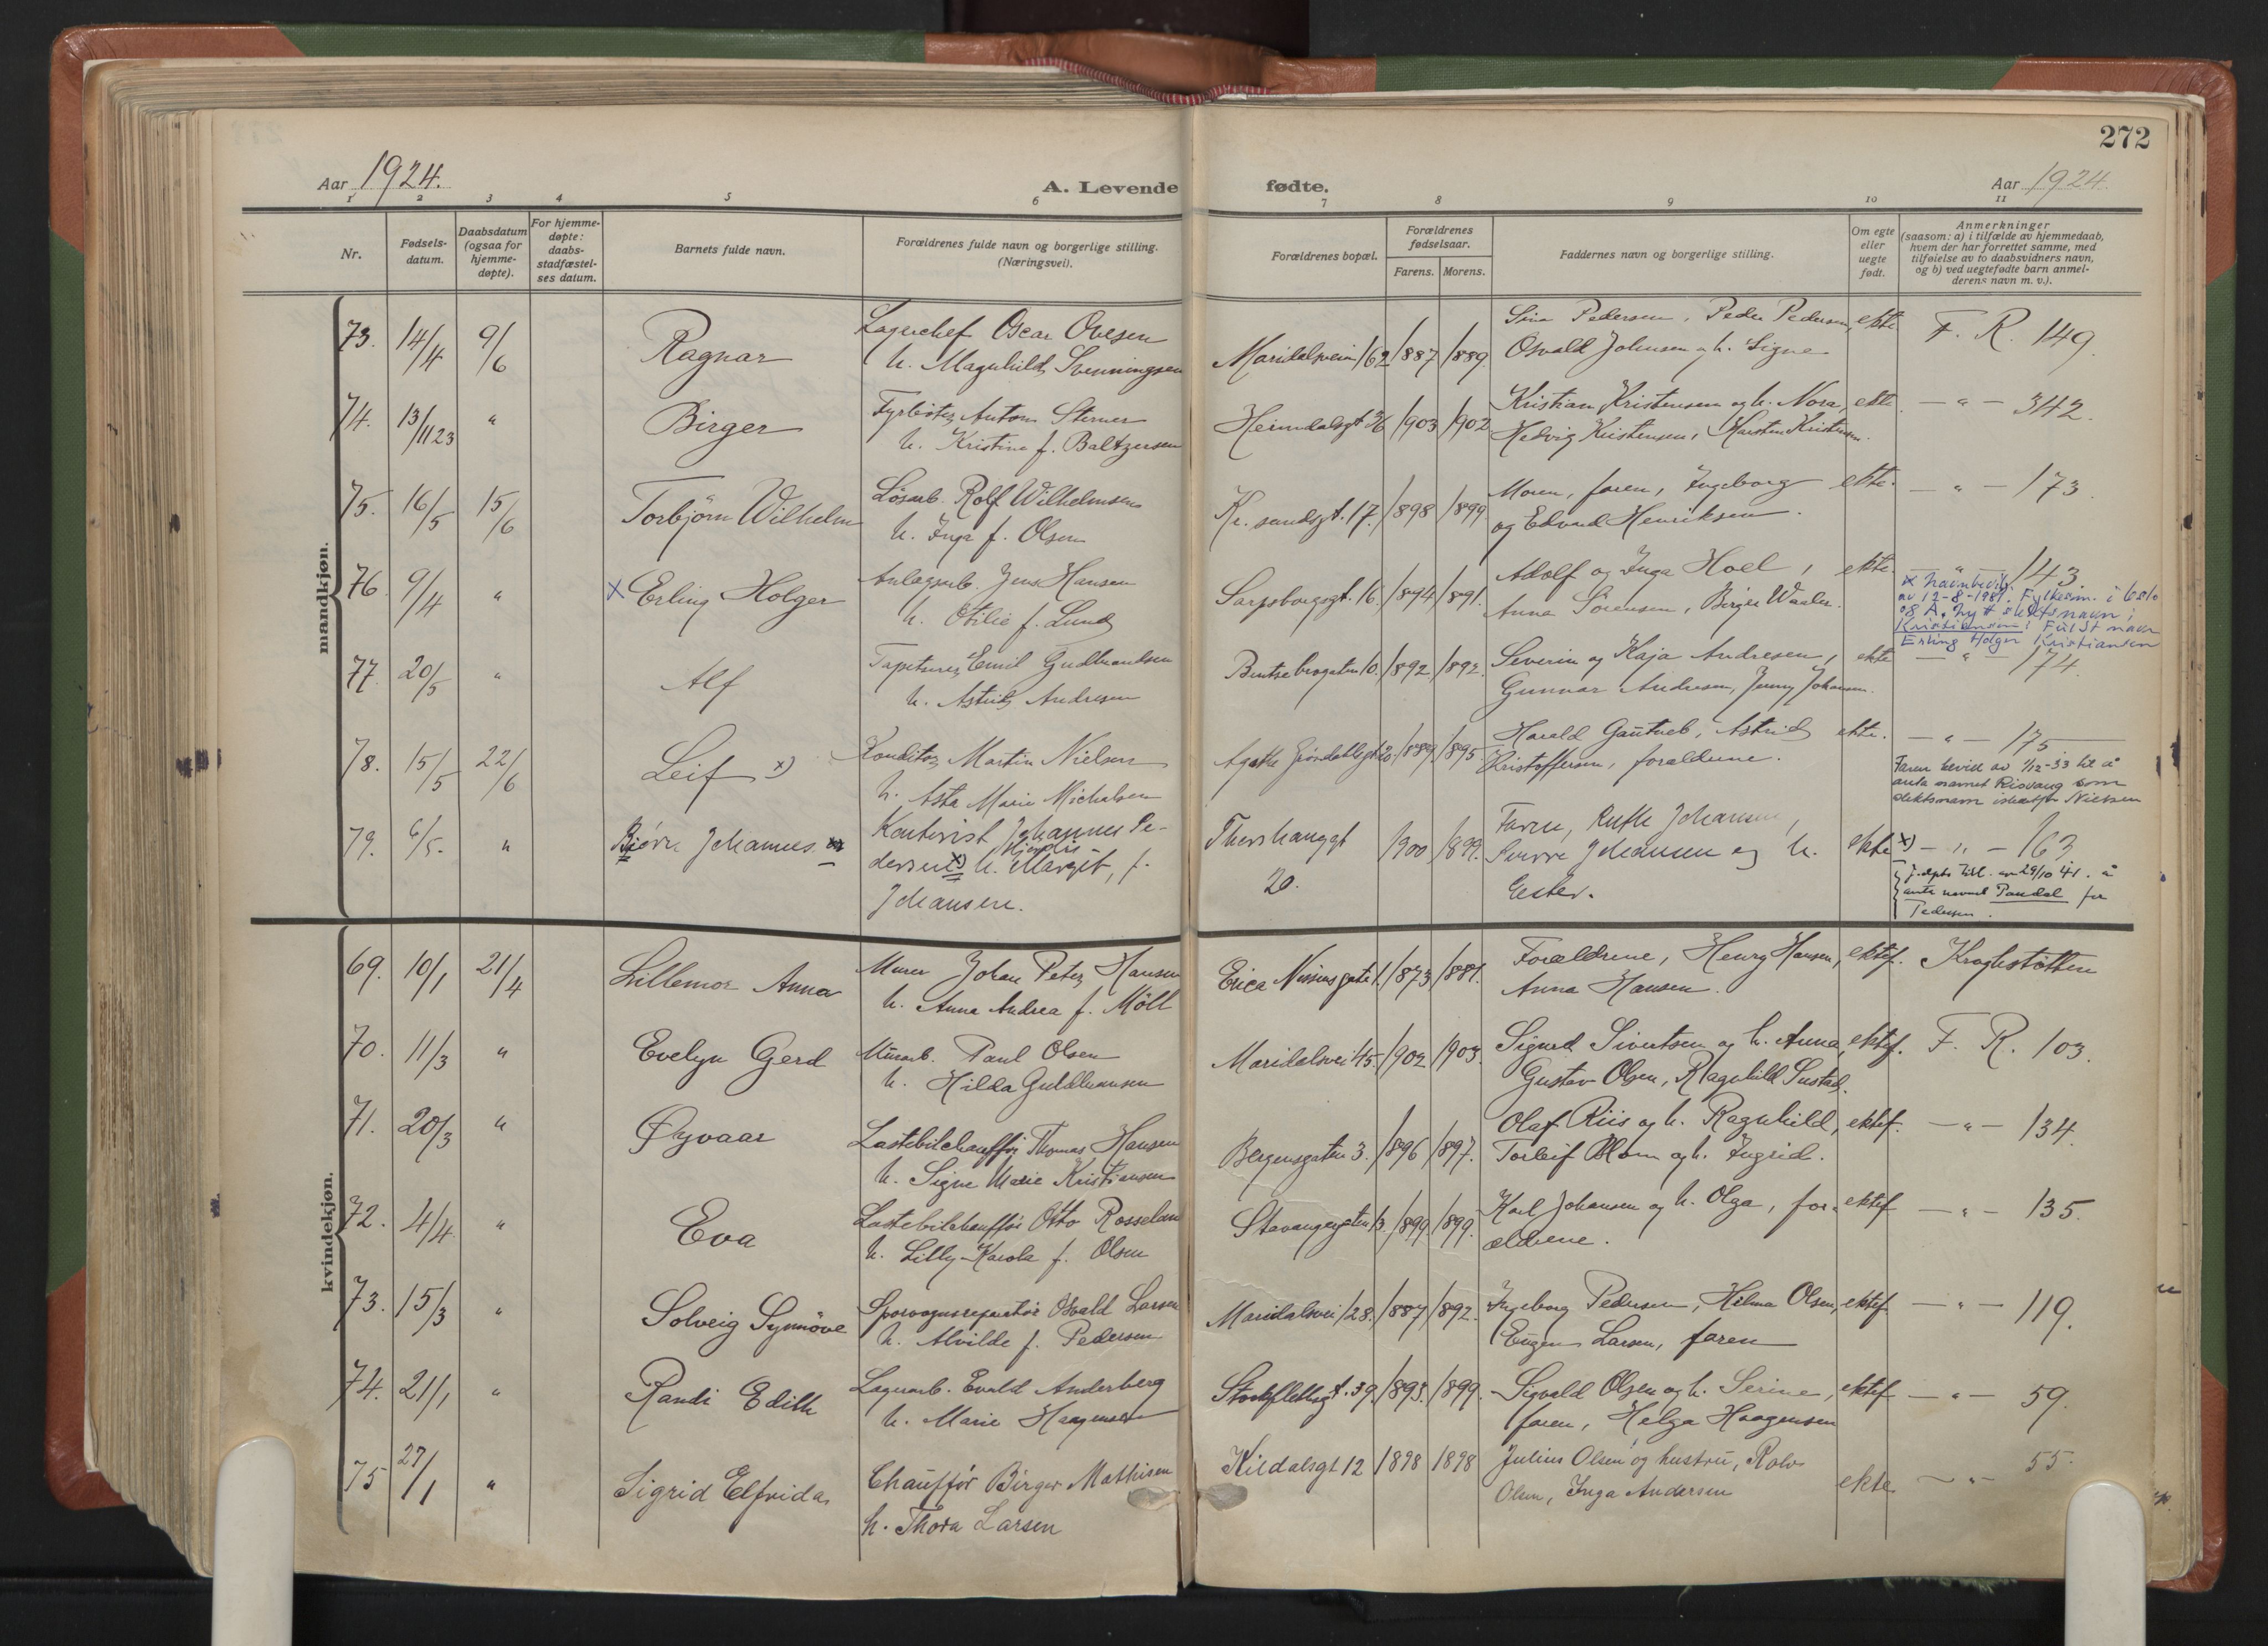 272
Aar 1924. A. Levende fødte. Aar 1924.
1 2 3 4 5 6 7 8 9 10 11
Nr. Fødsels-datum. Daabsdatum (ogsaa for hjemme-døpte). For hjemme-døpte: daabs-stadfæstel-ses datum. Barnets fulde navn. Forældrenes fulde navn og borgerlige stilling. (Næringsvei). Forældrenes bopæl. Forældrenes fødselsaar. Farens. Morens. Faddernes navn og borgerlige stilling. Om egte eller uegte født. Anmerkninger (saasom: a) i tilfælde av hjemmedaab, hvem der har forrettet samme, med tilføielse av to daabsvidners navn, og b) ved uegtefødte barn anmel-derens navn m. v.).
mandkjøn.
73. 14/4 9/6 Ragnar Lagerchef Oscar Ovesen Maridalsvein 162 1887 1889. Pedersen, Peder Pedersen, ekte F. R. 149.
h. Magnhild Svenningsen Osvald Johnsen og h. Signe
74. 13/11 23 " Birger Fyrbøter Anton Sterner Heimdalsgt. 1903 1902. Kristian Kristensen og h. Nora, ekte — " — 342.
h. Kristine f. Baltzersen Hedvig Kristensen, Kristensen.
75. 16/5 15/6 Torbjörn Wilhelm Løsarb. Rolf Wilhelmsen Kr. sundsgt. 17. 1898 1899 Moren, faren, Ingeborg ekte. — " — 173.
h. Inga f. Olsen og Edvard Henriksen.
76. 9/4 " x Erling Holger Anlægsarb. Jens Hansen Sarpsborggt. 16. 1894 1891. Adolf og Inga Hoel, ekte. — " — 143.
h. Otilie f. Lund Anna Sørensen, Birger Waaler.
x Navnbevilg. av 12-8-1981. Fylkesm. i Oslo
og A. Nytt slektsnavn:
Kristiansen: Fullst navn
Erling Holger Kristiansen
77. 20/5 " Alf Tapetserer Emil Gudbrandsen Bentsebrogaten 10. 1892 1892. Severin og Kaja Andresen, ekte — " — 174.
h. Astrid Andresen Gunnar Andresen, Jenny Johansen.
78. 15/5 22/6 Leif x) Konditor Martin Nielsen Agathe Grøndahlsgt 20. 1889. 1895. Harald Gautneb, Astrid ekte. — " — 175
h. Asta Marie Michalsen Kristoffersen, forældrene.
Faren bevilg. av 1/12-33 til å
anta navnet Risvang som
slektsnavn istedetfor Nielsen
79. 6/5. " Bjørn Johannes. x) Kontorist Johannes Pe- Thorshauggt 1900 1899. Faren, Ruth Johansen, ekte x) — " — 163
Hjørdis
dersen x) h. Margit, f. 20. Sverre Johansen og h.
Johansen. Ester.
J.dpts till. av 29/10 41. å
anta navnet Paudal for
Pedersen.
kvindekjøn.
69. 10/1 21/4 Lillemor Anna Murer Johan Peter Hansen Erica Nissens gate 1. 1873 1881. Forældrene, Henry Hansen, ektef. Kroghstötten
h. Anna Andrea f. Möll Anna Hansen.
70. 11/3 " Evelyn Gerd Murarb. Paul Olsen Maridalsvei 45. 1902 1903. Sigurd Sivertsen og h. Anna, ektef. F. R. 103.
h. Hilda Guldbransen Gustav Olsen, Ragnhild Sustad.
71. 20/3 " Øyvaar Lastebilchauffør Thomas Hansen Bergensgaten 3. 1896 1897. Olaf Riis og h. Ragnhild, ektef. — " — 134.
h. Signe Marie Kristiansen Torleif Blom og h. Ingrid.
72. 4/4. " Eva Lastebilchauffør Otto Rosseland Stavangergaten 13. 1899 1899. Karl Johansen og h. Olga, for- ektef — " — 135.
h. Lilly Karola f. Olsen ældrene.
73. 15/3 " Solveig Synnöve Sporvognsreparatør Osvald Larsen Maridalsvei 128. 1887 1892. Ingeborg Pedersen, Hilma Olsen, ektef. — " — 119.
h. Alvilde f. Pedersen Eugen Larsen, faren
74. 21/1 " Randi Edith Lagerarb. Evald Anderberg Stockflethsgt. 39. 1893. 1899. Sigvald Olsen og h. Serine, ektef — " — 59.
h. Marie Haagensen faren, Helga Haagensen
75 27/1 " Sigrid Elfrida Chauffør Birger Mathisen Kildalsgt 12 1898 1898 Julius Olsen og hustru, Rolv ekte — " — 55.
h. Thora Larsen Olsen, Inga Andersen